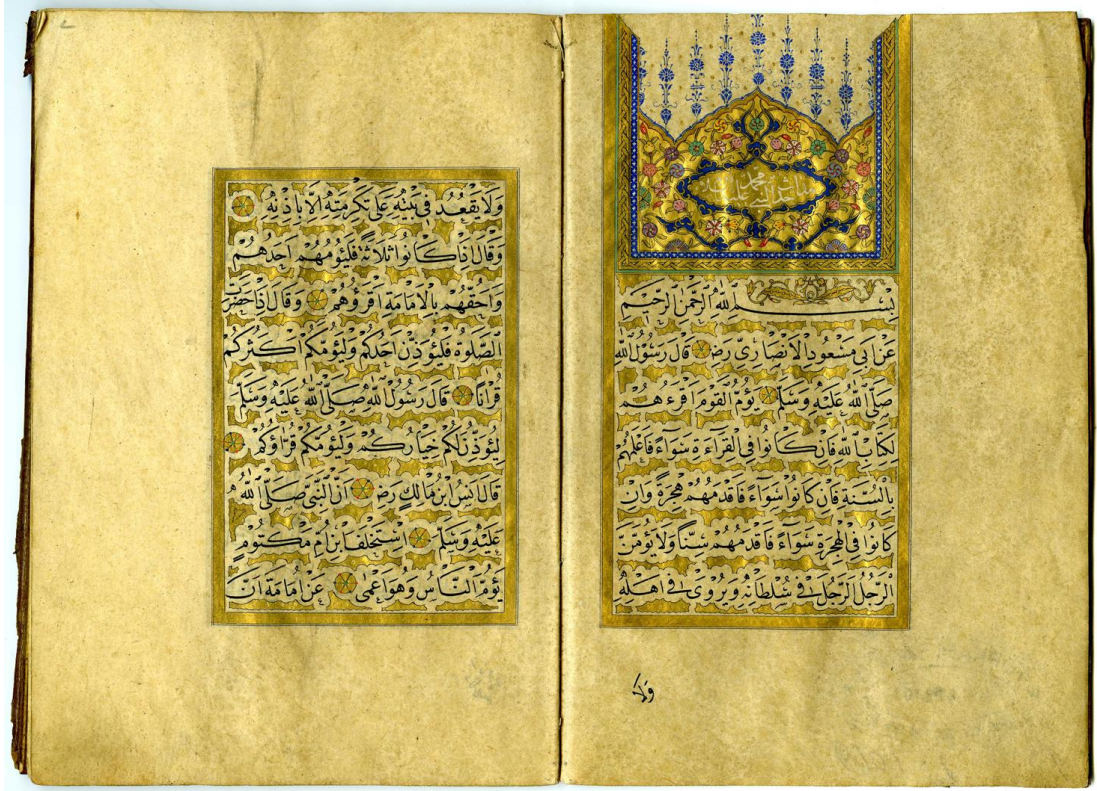 بسم الله الرحمن الرحيم
عن ابى مسعود الانصارى رض قال رسول الله
صلى الله عليه وسلم يؤم القوم اقرءهم
لكتاب الله فان كانوا فى القراءة سواء فاعلمهم
بالسنة فان كانوا سواء فاقدمهم هجرة وان
كانوا فى الهجرة سواء فاقدمهم سنا ولا يؤمن
الرجل الرجل فى سلطانه ويروى فى اهله
ولا
ولا يقعد فى بيته على تكرمته الا باذنه
وقال اذا كانوا ثلاثة فليؤمهم احدهم
واحقهم بالامامة اقرؤهم وقال اذا حضرت
الصلوة فليؤذن احدكم وليؤمكم اكثركم
قرانا قال رسول الله صلى الله عليه وسلم
ليؤذن لكم خياركم وليؤمكم قراؤكم
قال انس ابن مالك رض ان النبى صلى الله
عليه وسلم استخلف ابن ام مكتوم
يؤم الناس وهو اعمى عن امامة ان